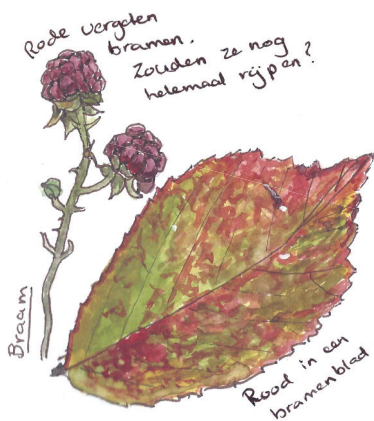 Rode vergeten
bramen.
Zouden ze nog
helemaal rijpen?
Braam
Rood in een
bramenblad